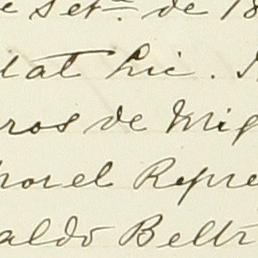 e Set.= de 18
tat Lic. I
ros de Mig
por el Repre
aldo Beltr